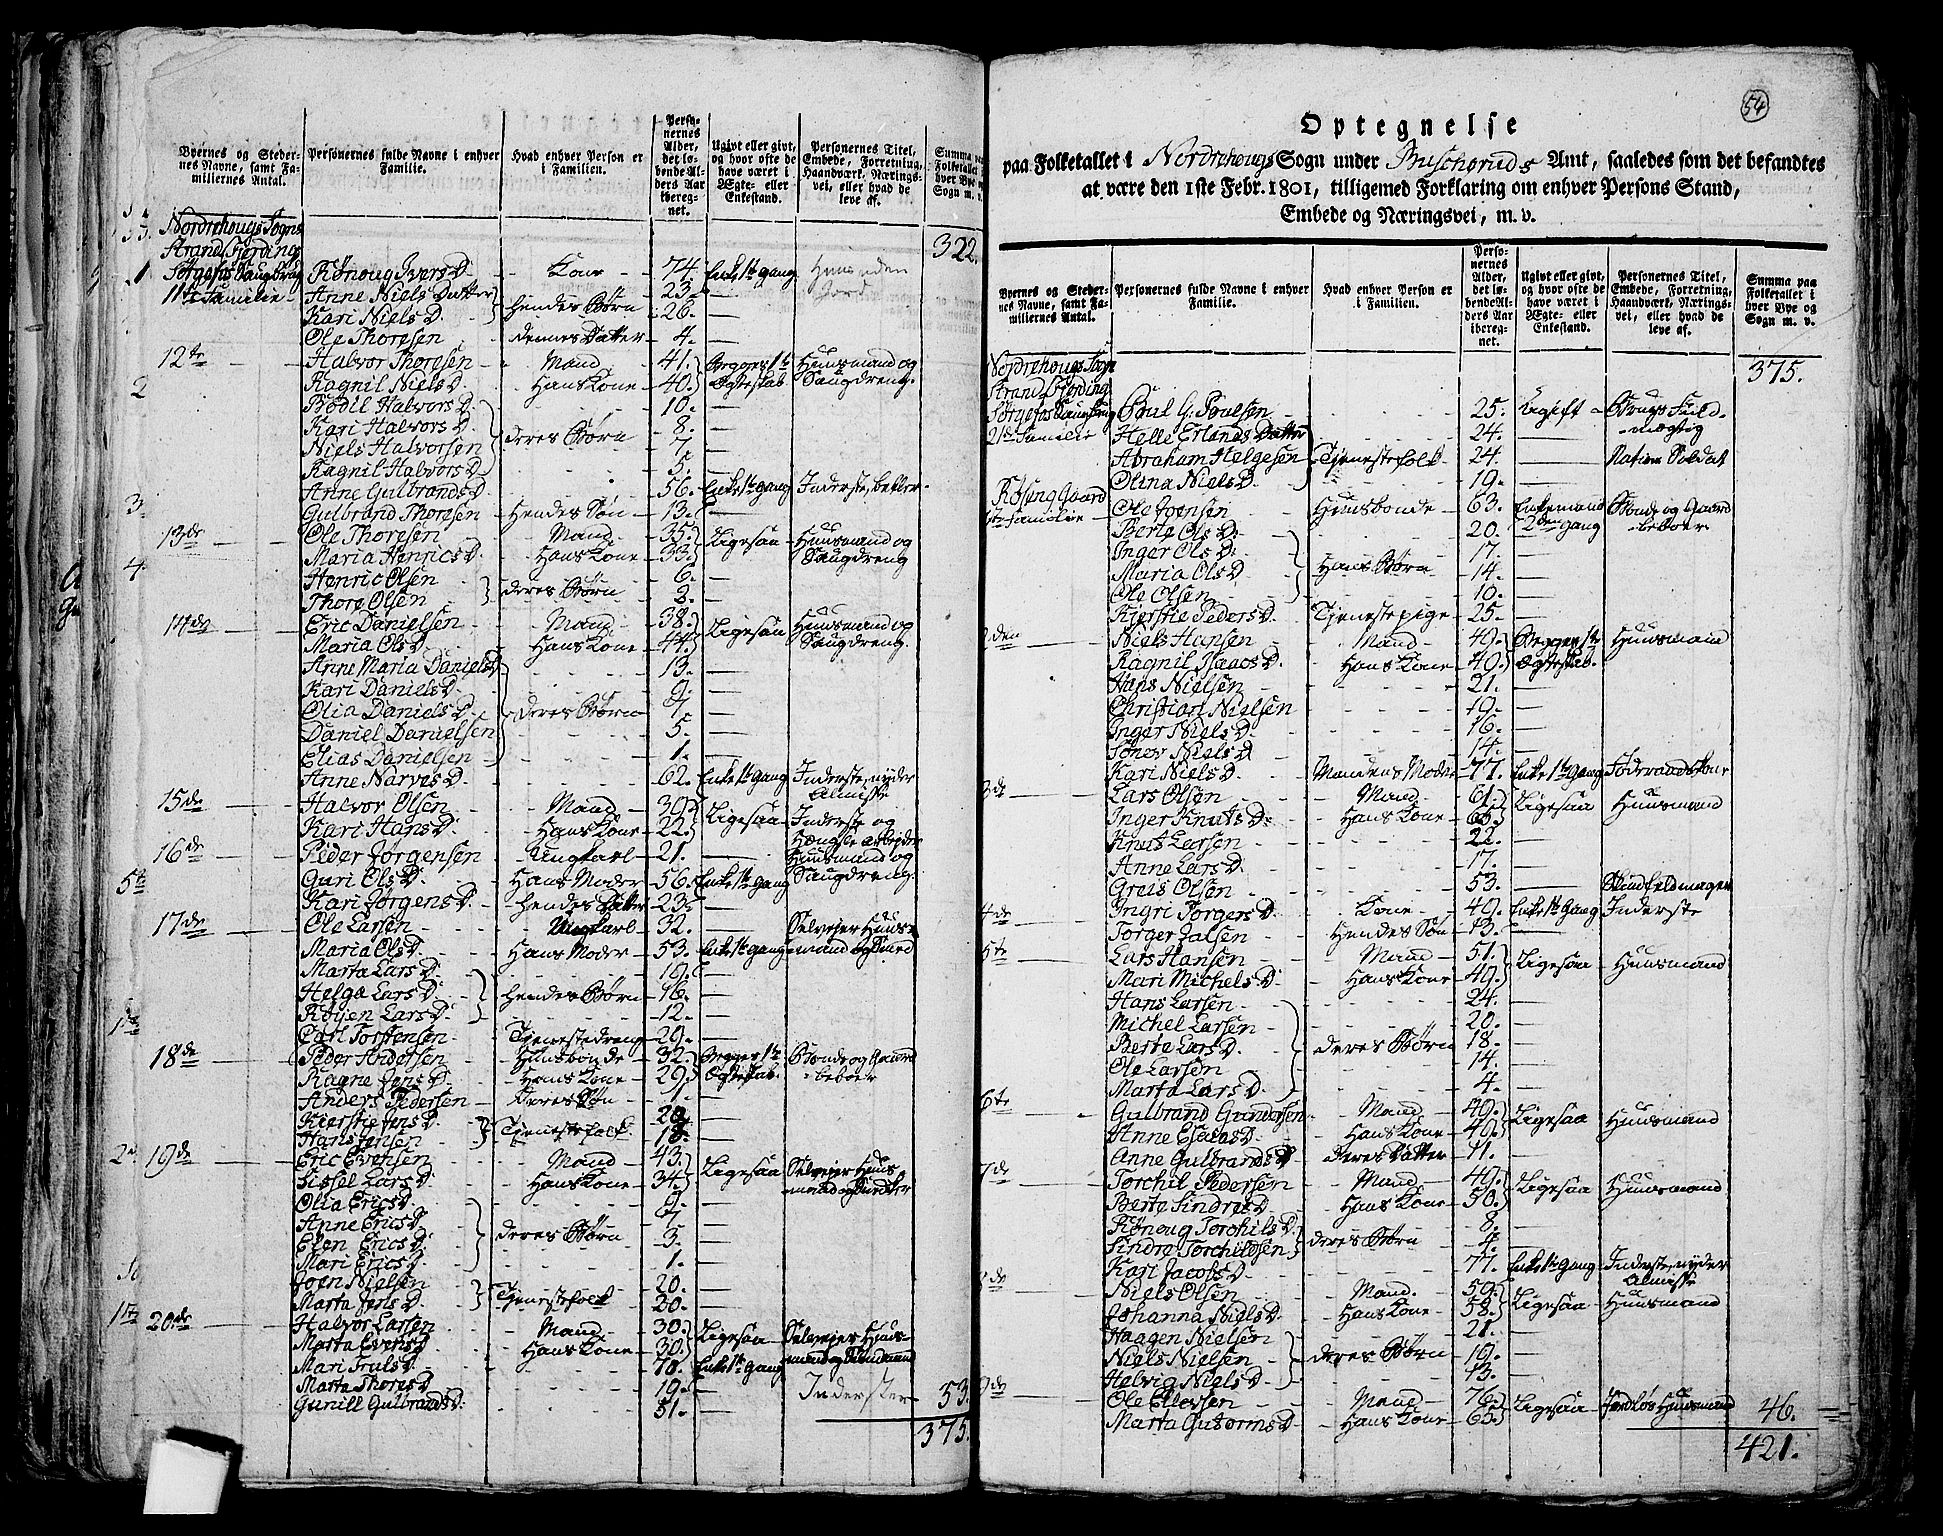 Byernes og Steder-nes Navne, samt Fa-miliernes Antal. | Personernes fulde Navne i enhver Familie. | Hvad enhver Person er i Familien. | Perso-nernes Alder, det lø-bende Al-ders Aar iberegnet. | Ugivt eller givt, og hvor ofte de have været i Ægte- eller Enkestand. | Personernes Titel, Embede, Forretning, Haandværk, Nærings-vei, eller hvad de leve af. | Summa paa Folketallet i hver Bye og Sogn m. v.
Nordrehougs Sogns
Strand Fierding | 322.
Rønoug Ivers D. | Kone | 74. | Enke 1te gang | Huus uden Jord
11te Familie | Anne Niels Datter | hendes Børn | 23.
Kari Niels D. | 26.
Ole Thoresen | dennes Datter | 4.
12te | Halvor Thoresen | Mand | 41. | Begge 1te Ægteskab | Huusmand og Saugdreng
Ragnil Niels D. | Hans Kone | 40.
Bodil Halvors D. | 10.
Kari Halvors D. | deres Børn | 8.
Niels Halvorsen | 7.
Ragnil Halvors D. | 5.
Anne Gulbrands D. | 56. | Enke 1te gang | Inderste, betler
Gulbrand Thoresen | Hendes Søn | 13.
13de | Ole Thoresen | Mand | 35. | Ligesaa | Huusmand og Saugdreng
Maria Henrics D. | Hans Kone | 33.
Henric Olsen | deres Børn | 6.
Thore Olsen | 2.
14de | Eric Danielsen | Mand | 38. | Ligesaa | Huusmand og Saugdreng
Maria Ols D. | Hans Kone | 44.
Anne Maria Daniels D. | 13.
Kari Daniels D. | 9.
Olia Daniels D. | deres Børn | 7.
Daniel Danielsen | 5.
Elias Danielsen | 1.
Anne Narves D. | 62. | Enke 1te gang | Inderste, nyder Almisse
15de | Halvor Olsen | Mand | 30. | Ligesaa | Inderste og
Kari Hans D. | Hans Kone | 22.
16de | Peder Jørgensen | Ungkarl | 21. | Huusmand og Saugdreng
Guri Ols D. | Hans Moder | 56. | Enke 1te gang
Kari Jørgens D. | hendes Datter | 23.
17de | Ole Larsen | Ungkarl | 32. | Selveier Huus-
Maria Ols D. | Hans Moder | 53. | Enke 1te gang
Marta Lars D. | 19.
Helga Lars D. | hendes Børn | 16.
Røijen Lars D. | 12.
Carl Torstensen | Tjenestedreng | 29.
18de | Peder Andersen | Huusbonde | 32. | Begge 1te Ægteskab | Bonde og Gaard beboer
Ragne Jens D. | Hans Kone | 29.
Anders Pedersen | deres Søn | 1.
Kierstie Jens D. | Tjenestefolk | 20
Hans Jensen | 18
19de | Eric Evensen | Mand | 43. | Ligesaa | Selveier Huus
Sissel Lars D. | Hans Kone | 34.
Olia Erics D. | 9.
Anne Erics D. | deres Børn | 7.
Elen Erics D. | 3.
Mari Erics D. | 1.
Joen Nielsen | Tjenestefolk | 20.
Marta Jens D. | 30.
20de | Halvor Larsen | Mand | 30. | Ligesaa | Selveier Huus-
Marta Evens D. | Hans Kone | 30.
Mari Truls D. | 70. | Enke 1te gang
Marta Thores D. | 19. | Inderster | 53.
Gunill Gulbrands D. | 51.
375.
54
Optegnelse
paa Folketallet i Nordrehougs Sogn under Buscheruds Amt, saaledes som det befandtes
at være den 1ste Febr. 1801, tilligemed Forklaring om enhver Persons Stand,
Embede og Næringsvei, m. v.
Byernes og Steder-nes Navne, samt Fa-miliernes Antal. | Personernes fulde Navne i enhver Familie. | Hvad enhver Person er i Familien. | Perso-nernes Alder, det lø-bende Al-ders Aar iberegnet. | Ugivt eller givt, og hvor ofte de have været i Ægte- eller Enkestand. | Personernes Titel, Embede, Forretning, Haandværk, Nærings-vei, eller hvad de leve af. | Summa paa Folketallet i hver Bye og Sogn m. v.
Nordrehougs Sogn
Strand Fierding | 375.
Poul G: Poulsen | 25. | Ugift | Brugs Fuld-mægtig
21de Familie | Helle Erlands Datter | 24.
Abraham Helgesen | Tjenestefolk | 24. | Nation: Soldat
Olina Niels D. | 19.
Røseng Gaard
1te Familie | Ole Joensen | Huusbonde | 63. | Enkemand 2den gang | Bonde og Gaard beboer
Berte Ols D. | 20.
Inger Ols D. | 17.
Maria Ols D. | Hans Børn | 14.
Ole Olsen | 10.
Kjerstie Peders D. | Tjenestepige | 25.
2den | Niels Hansen | Mand | 49. | Begge 1te Ægteskab | Huusmand
Ragnil Isaacs D. | Hans Kone | 40.
Hans Nielsen | 21.
Christian Nielsen | 19.
Inger Niels D. | 16.
Niels D. | 14.
Kari Niels D. | Mandens Moder | 77. | Enke 1te gang | Føderaadskone
3de | Lars Olsen | Mand | 61. | Ligesaa | Huusmand
Inger Knuts D. | Hans Kone | 60.
Knut Larsen | 22.
Anne Lars D. | 17.
Greis Olsen | 53. | Skindfeldmager
4de | Ingri Torgers D. | Kone | 49. | Enke 1te Gang | Inderste
Torger Jalsen | Hendes Søn | 13.
5te | Lars Hansen | Mand | 51. | Ligesaa | Huusmand
Mari Michels D. | Hans Kone | 49.
Hans Larsen | 24.
Michel Larsen | 20.
Berte Lars D. | deres Børn | 18.
Ole Larsen | 14.
Marta Lars D. | 4.
6te | Gulbrand Gundersen | Mand | 49. | Ligesaa | Huusmand
Anne Esaias D. | Hans Kone | 49.
Anne Gulbrands D. | Deres Datter | 11.
7de | Torchil Pedersen | Mand | 49. | Ligesaa | Huusmand
Berte Sindres D. | Hans Kone | 50.
Rønoug Torchils D. | deres Børn | 8.
Sindre Torchildsen | 4.
Kari Jacobs D. | 77. | Enke 1te Gang | Inderste, nyder Almisse
8de | Niels Olsen | Mand. | 59. | Ligesaa | Huusmand
Johanna Niels D. | Hans Kone | 58.
Haagen Nielsen | 21.
Niels Nielsen | deres Børn | 19.
Helvig Niels D. | 13.
9de | Ole Ellevsen | Mand | 76. | Ligesaa | Jordløs Huusmand | 46.
Marta Gutorms D. | Hans Kone | 65.
421.